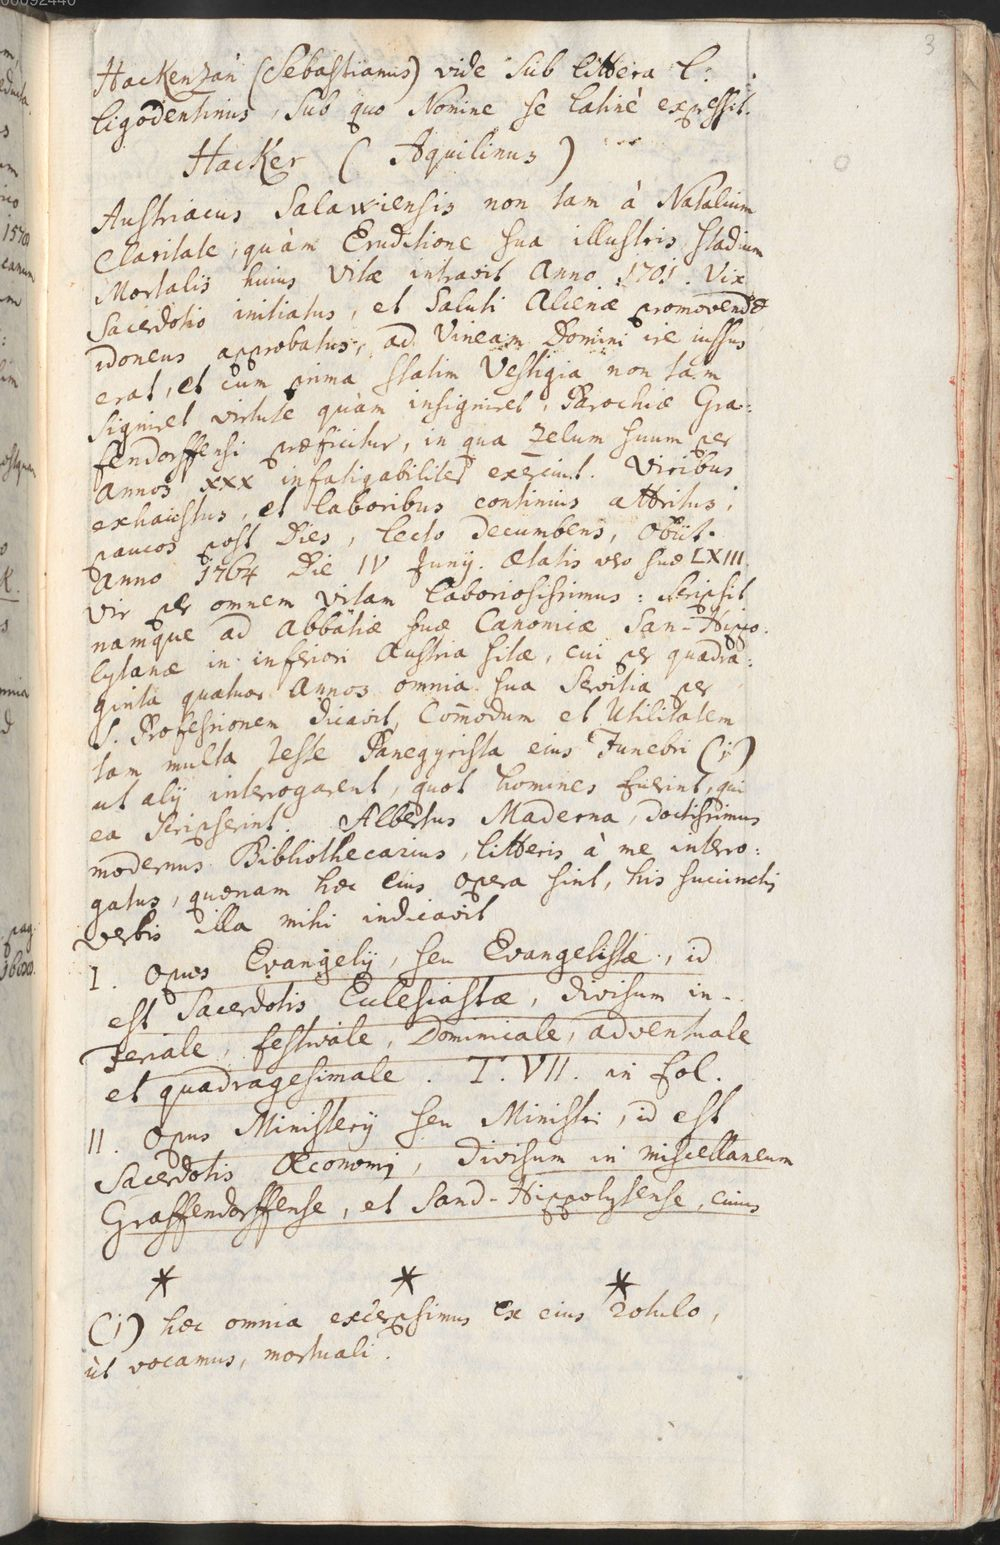 3
Hackenzan (Sebastianus) vide sub littera L:
Ligodentinus, sub quo Nomine se latinè expressit.
Hacker ( Aquilinus )
Austriacus Salawiensis non tam à Natalium
Claritate, quàm Eruditione sua illustris, stadium
Mortalis huius Vitæ intravit Anno 1701. Vix
Sacerdotio initiatus, et Saluti Alienæ promovendæ
idoneus approbatus, ad Vineam Domini ire iussus
erat, et cum prima statim Vestigia non tam
signiret virtute quàm insigniret, Parochiæ Gra:
fendorffensi præficitur, in qua zelum suum per
Annos XXX infatigabiliter exercuit. Viribus
exhaustus, et laboribus continuis attritus,
paucos post Dies, lecto decumbens, Obiit
Anno 1764 Die IV Junij. Ætatis vero suæ LXIII.
Vir per omnem vitam laboriosissimus: Scripsit
namque ad Abbatiæ suæ Canonicæ San-Hippo:
lytanæ in inferiori Austria sitæ, cui per quadra:
ginta quatuor Annos omnia sua Servitia per
S. Professionem dicavit, Com̄odum et Utilitatem
tam multa teste Panegyrista eius Funebri (i)
ut alij interrogarent, quot homines fuerint, qui
ea scripserint. Albertus Maderna, doctissimus
modernus Bibliothecarius, litteris à me interro:
gatus, quænam hæc eius opera sint, his succinctis
verbis illa mihi indicavit
I. Opus Evangelij, seu Evangelistæ, id
est Sacerdotis Ecclesiastæ, divisum in
Feriale, festivale, Dominicale, adventuale
et quadragesimale. T. VII. in fol.
II. Opus Ministerij seu Ministri, id est
Sacerdotis Œconomi, divisum in miscellaneum
Graffendorffense, et Sand-Hippolytense, cuius
* * *
(i) hæc omnia excerpsimus ex eius rotulo,
ùt vocamus, mortuali.